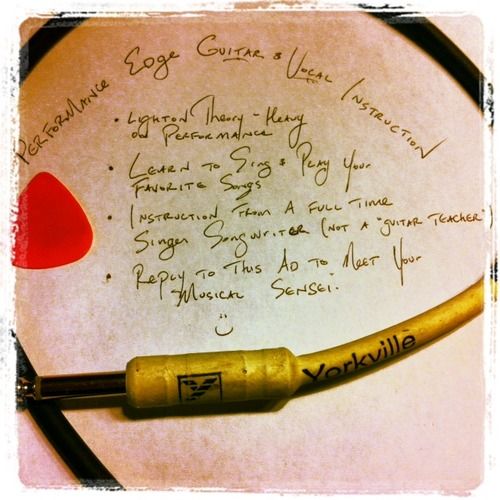 Performance Edge Guitar & Vocal Instruction
• Light on Theory - Heavy
on Performance
• Learn to Sing & Play Your
Favorite Songs
• Instruction From A Full Time
Singer Songwriter (not a "guitar teacher")
• Reply to This Ad to Meet Your
Musical Sensei.
Yorkville